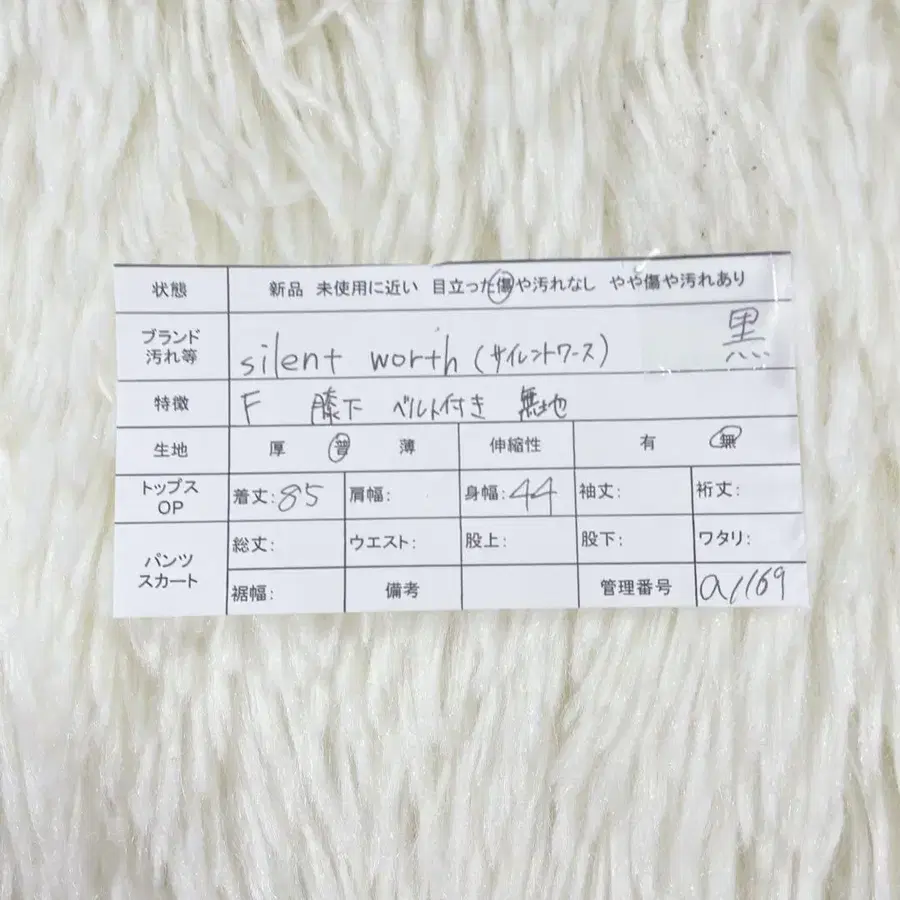 状態 新品 未使用に近い 目立った傷や汚れなし やや傷や汚れあり
ブランド 汚れ等 silent worth (サイレントワース) 黒
特徴 F 膝下 ベルト付き 無地
生地 厚 普 薄 伸縮性 有 無
トップス OP 着丈:85 肩幅: 身幅:44 袖丈: 裄丈:
パンツ スカート 総丈: ウエスト: 股上: 股下: ワタリ:
裾幅: 備考 管理番号 a1169